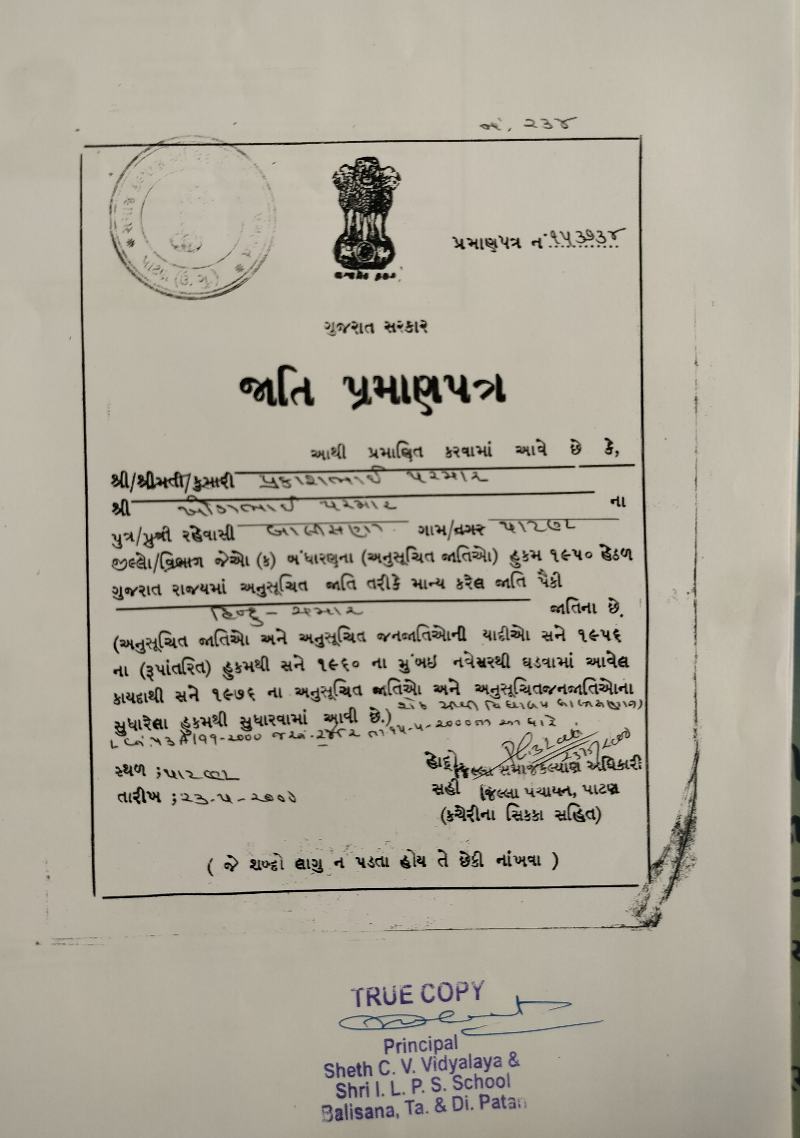 નં. ૨૩૪
પ્રમાણપત્ર નં ૧૫૩૭૩૪
ગુજરાત સરકાર
જાતિ પ્રમાણપત્ર
આથી પ્રમાણિત કરવામાં આવે છે કે,
શ્રી/શ્રીમતી/કુમારી પ્રકાશભાઈ પરમાર
શ્રી ખોડાભાઈ પરમાર ના
પુત્ર/પુત્રી રહેવાસી બાલીસણા ગામ/નગર પાટણ
જીલ્લો/વિભાગ જેઓ (ક) બંધારણના (અનુસૂચિત જાતિઓ) હુકમ ૧૯૫૦ હેઠળ
ગુજરાત રાજ્યમાં અનુસૂચિત જાતિ તરીકે માન્ય કરેલ જાતિ પૈકી
હિન્દુ - ચમાર જાતિના છે.
(અનુસૂચિત જાતિઓ અને અનુસૂચિત જનજાતિઓની યાદીઓ સને ૧૯૫૬
ના (રૂપાંતરિત) હુકમથી સને ૧૯૬૦ ના મુંબઇ નવેસરથી ઘડવામાં આવેલ
કાયદાથી સને ૧૯૭૬ ના અનુસૂચિત જાતિઓ અને અનુસૂચિતજનજાતિઓના
સુધારેલા હુકમથી સુધારવામાં આવી છે.)
તા ૧૫-૫-૨૦૦૦ના આધારે
સ્થળ ; પાટણ
હોદ્દો જિલ્લા સમાજકલ્યાણ અધિકારી
તારીખ ; ૨૩-૫-૨૦૦૦
સહી જિલ્લા પંચાયત, પાટણ
(કચેરીના સિક્કા સહિત)
( જે શબ્દો લાગુ ન પડતા હોય તે છેકી નાંખવા )
TRUE COPY
Principal
Sheth C. V. Vidyalaya &
Shri I. L. P. S. School
Balisana, Ta. & Di. Patan